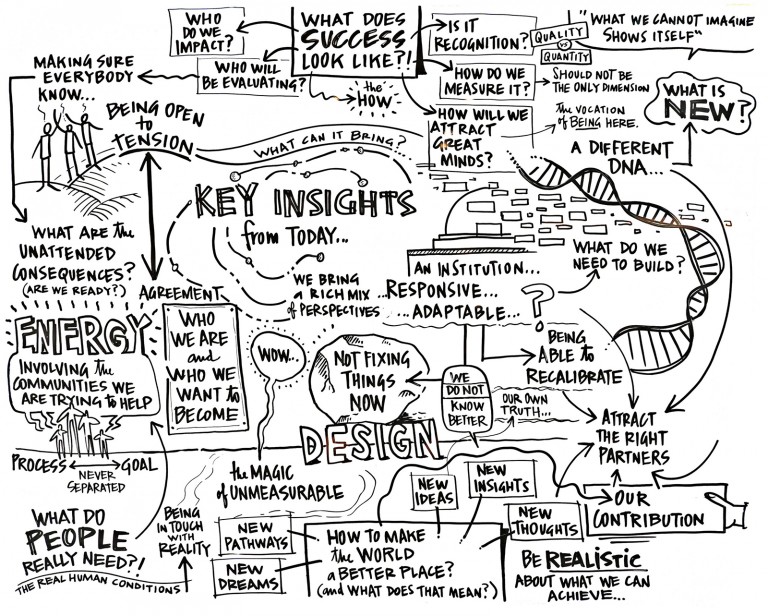 WHO
DO WE
IMPACT?
WHAT DOES
SUCCESS
LOOK LIKE?!
IS IT
RECOGNITION?
QUALITY
VS
QUANTITY
"WHAT WE CANNOT IMAGINE
SHOWS ITSELF"
MAKING SURE
EVERYBODY
KNOW...
WHO WILL
BE EVALUATING?
the
HOW
HOW DO WE
MEASURE IT?
SHOULD NOT BE
THE ONLY DIMENSION
WHAT IS
NEW?
BEING OPEN
to
TENSION
WHAT CAN IT BRING?
HOW WILL WE
ATTRACT
GREAT
MINDS?
the VOCATION
of BEING HERE.
A DIFFERENT
DNA...
KEY INSIGHTS
from TODAY...
WHAT ARE the
UNATTENDED
CONSEQUENCES?
(ARE WE READY?)
AGREEMENT
WE BRING
A RICH MIX
of PERSPECTIVES
AN INSTITUTION...
...RESPONSIVE...
...ADAPTABLE...
?
WHAT DO WE
NEED TO BUILD?
ENERGY
INVOLVING the
COMMUNITIES WE
ARE TRYING to HELP
WHO
WE ARE
and
WHO WE
WANT to
BECOME
WOW...
NOT FIXING
THINGS
NOW
WE
DO NOT
KNOW
BETTER
BEING
ABLE to
RECALIBRATE
OUR OWN
TRUTH...
ATTRACT
THE RIGHT
PARTNERS
DESIGN
PROCESS
GOAL
NEVER
SEPARATED
the MAGIC
of UNMEASURABLE
NEW
IDEAS
NEW
INSIGHTS
OUR
CONTRIBUTION
WHAT DO
PEOPLE
REALLY NEED?!
THE REAL HUMAN CONDITIONS
BEING
IN TOUCH
WITH
REALITY
NEW
PATHWAYS
NEW
DREAMS
HOW TO MAKE
the WORLD
a BETTER PLACE?
(and WHAT DOES THAT MEAN?)
NEW
THOUGHTS
BE REALISTIC
ABOUT WHAT WE CAN
ACHIEVE...